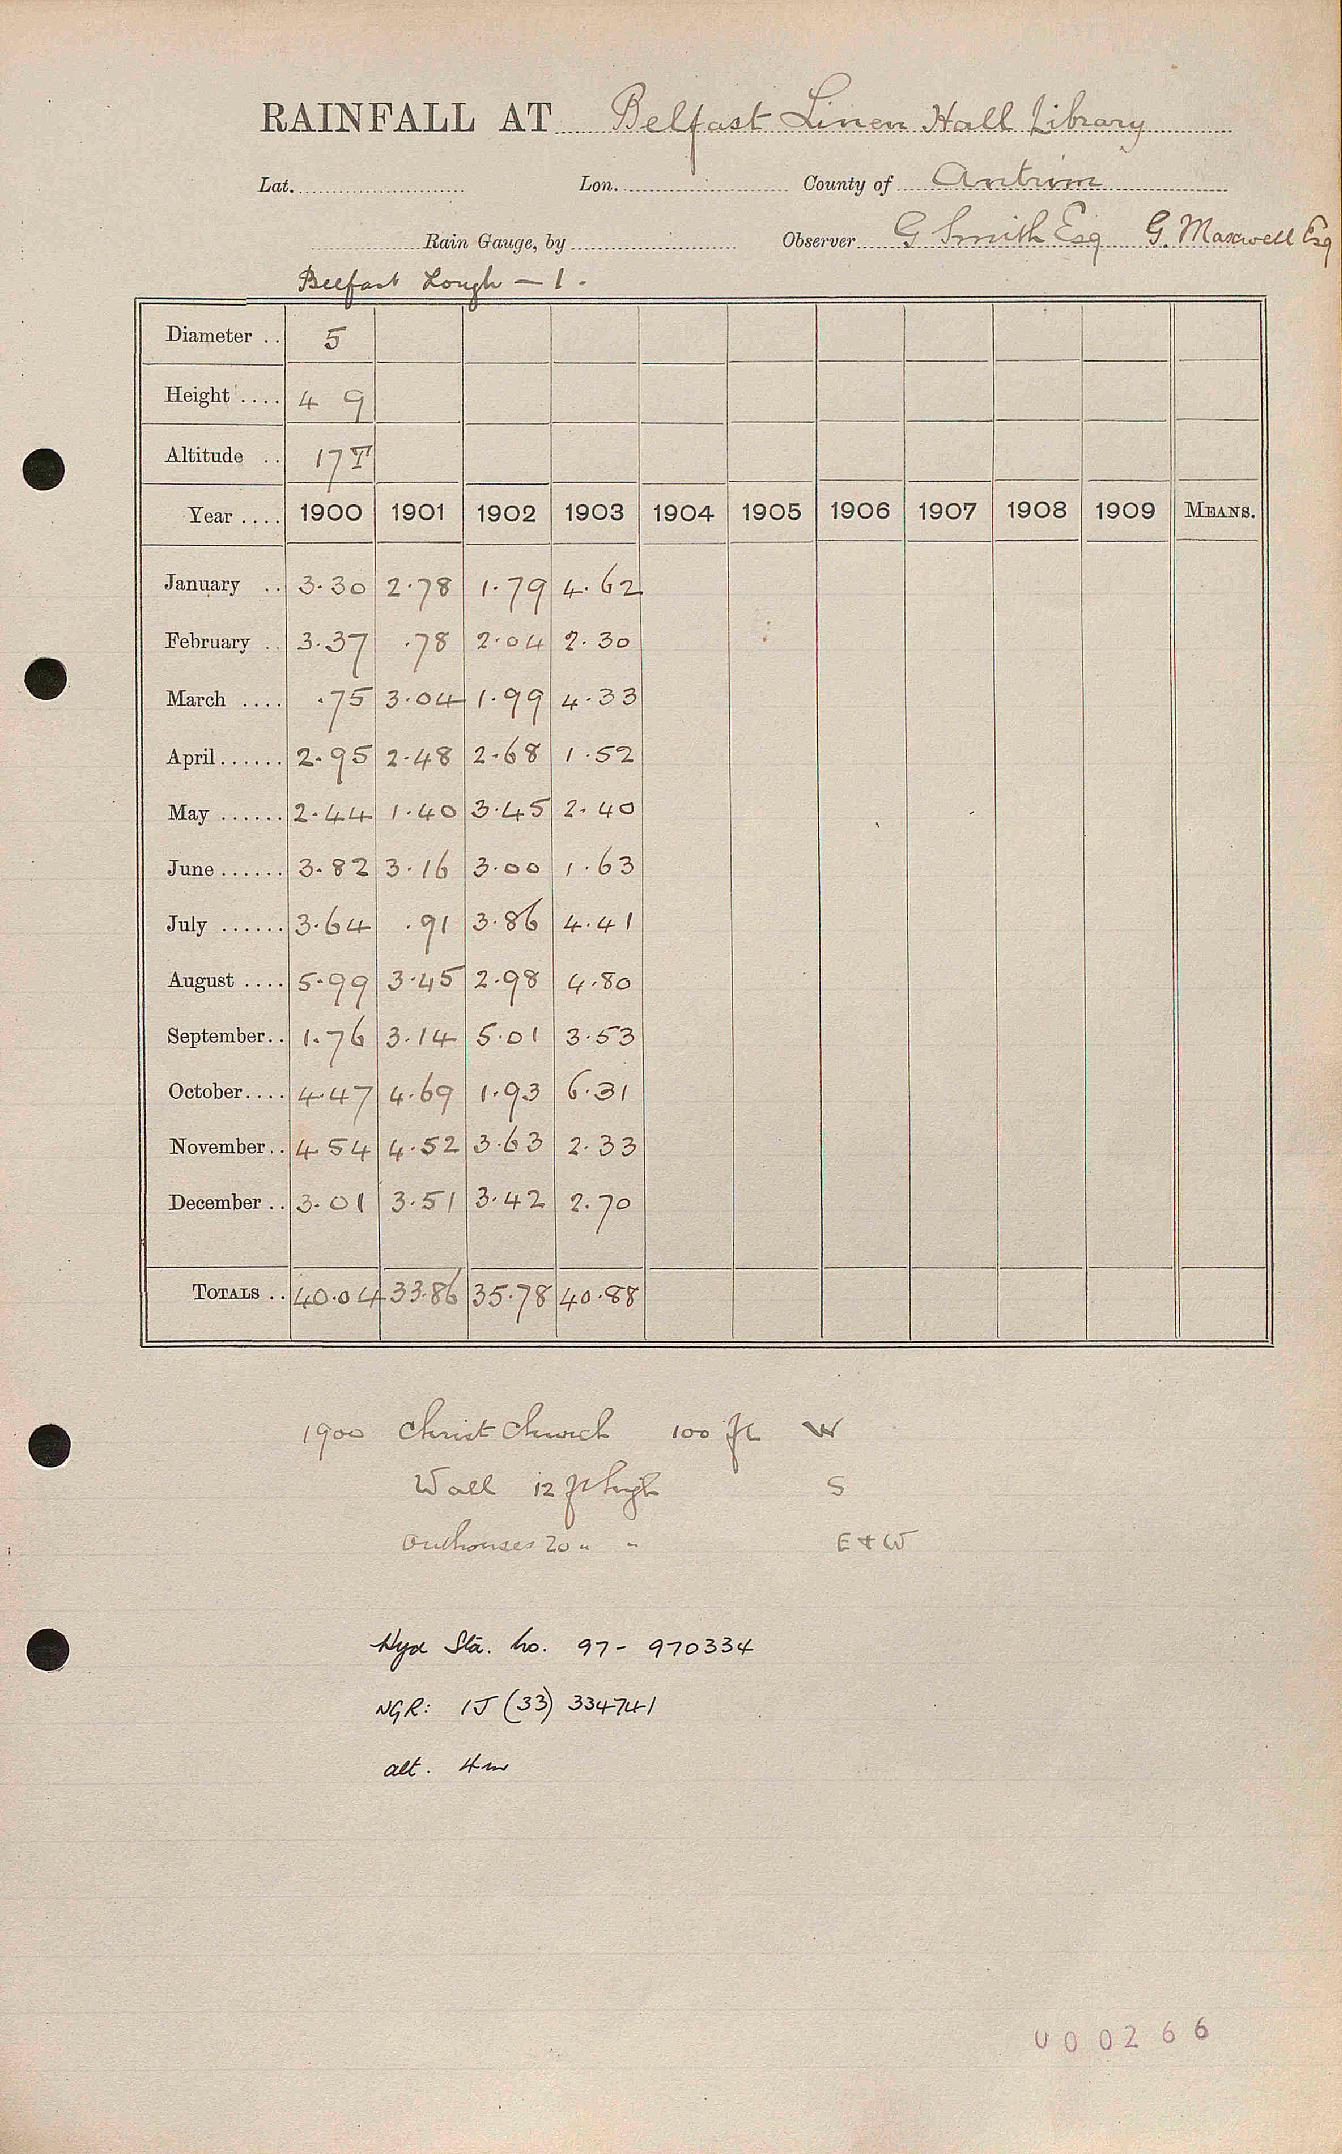 RAINFALL AT Belfast Linen Hall Library
Lat. Lon. County of Antrim
Rain Gauge, by Observer G Smith Esq G. Maxwell Esq
Belfast Lough - 1.
Diameter .. 5
Height .... 4 9
Altitude .. 17 T
Year .... 1900 1901 1902 1903 1904 1905 1906 1907 1908 1909 MEANS.
January .. 3.30 2.78 1.79 4.62
February .. 3.37 .78 2.04 2.30
March .... .75 3.04 1.99 4.33
April...... 2.95 2.48 2.68 1.52
May ...... 2.44 1.40 3.45 2.40
June...... 3.82 3.16 3.00 1.63
July ...... 3.64 .91 3.86 4.41
August .... 5.99 3.45 2.98 4.80
September.. 1.76 3.14 5.01 3.53
October.... 4.47 4.69 1.93 6.31
November.. 4.54 4.52 3.63 2.33
December .. 3.01 3.51 3.42 2.70
TOTALS .. 40.04 33.86 35.78 40.88
1900 Christ Church 100 ft W
Wall 12 ft high S
Outhouses 20 " " E & W
Hyd Sta. No. 97- 970334
NGR: IJ (33) 334741
alt. 4m
U00266